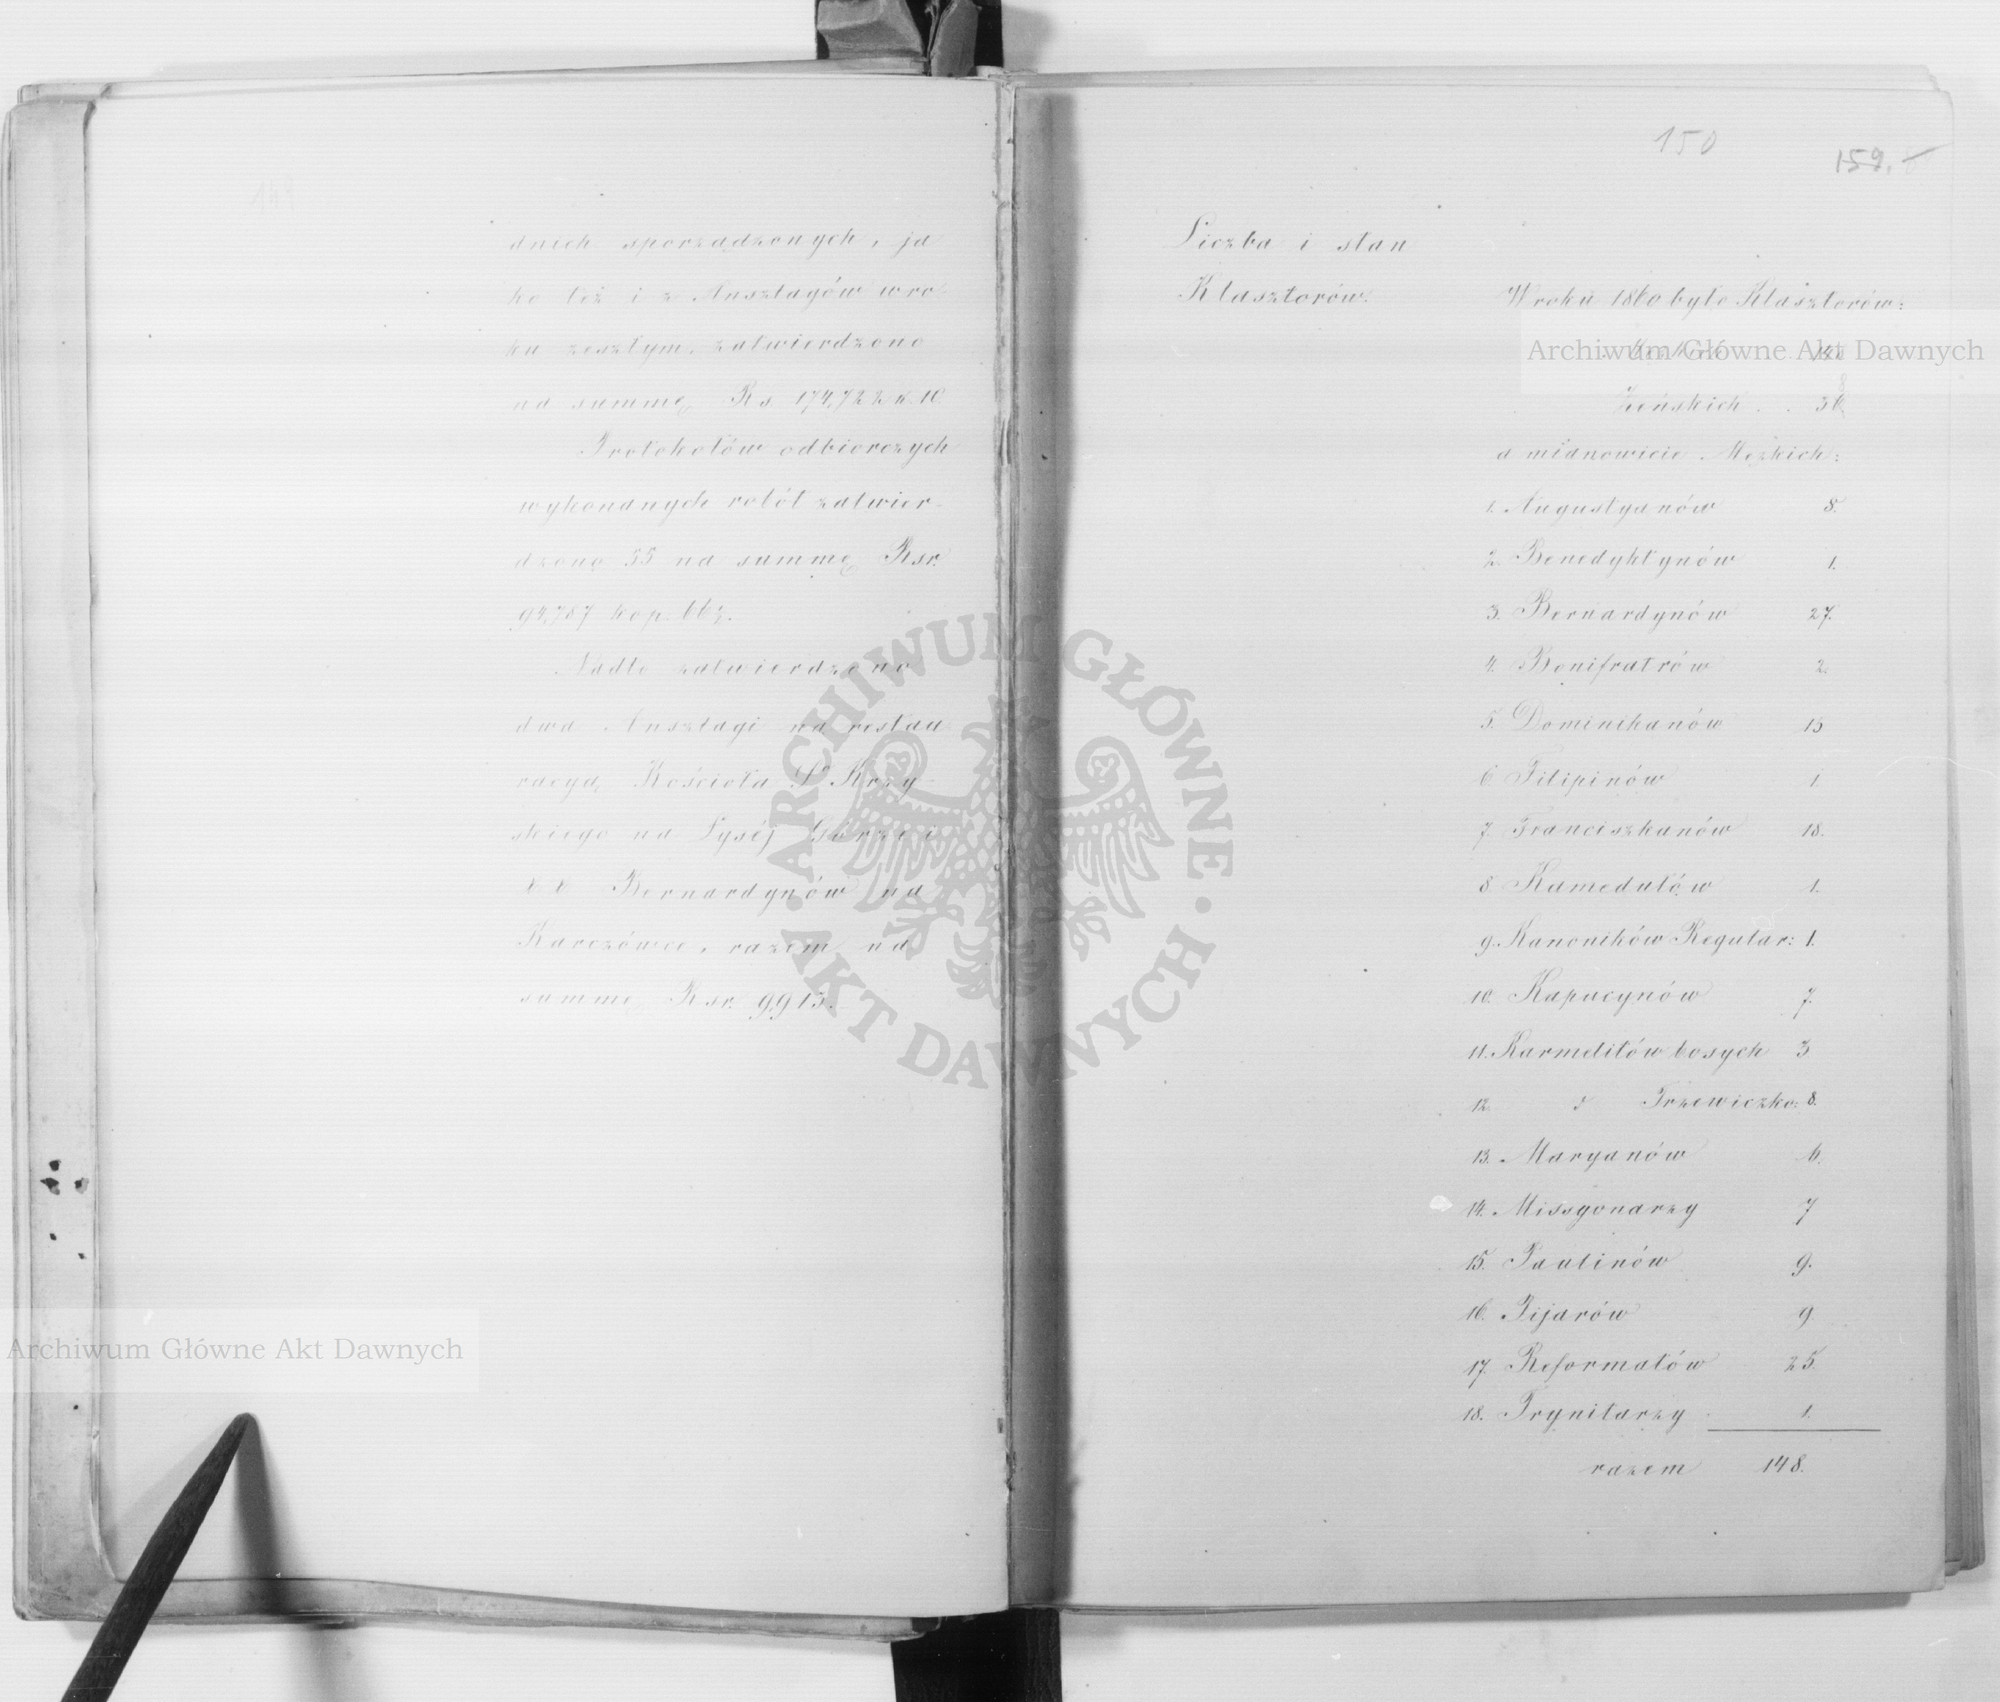 dnich sporządzonych, ja
ko też i z Anszlagów w ro
ku zeszłym, zatwierdzono
na summę Rs. 174,722 k. 10
Protokołów odbiorczych
wykonanych robót zatwier-
dzono 55 na summę Rsr.
94,787 kop.
Nadto zatwierdzono
dwa Anszlagi na restau
racyą Kościoła Sº Krzy-
skiego na Łyséj Górze i
XX Bernardynów na
Karczówce, razem na
summę Rsr. 9915.
150
159.
Liczba i stan
Klasztorów.
W roku 1860 było Klasztorów:
Żeńskich . .
a mianowicie Męzkich:
1. Augustyanów 8.
2. Benedyktynów 1.
3. Bernardynów 27.
4. Bonifratrów 2.
5. Dominikanów 15
6. Filipinów 1.
7. Franciszkanów 18.
8. Kamedułów 1.
9. Kanoników Regular: 1.
10. Kapucynów 7.
11. Karmelitów bosych 3
12. " Trzewiczko: 8.
13. Maryanów 6.
14. Missyonarzy 7
15. Paulinów 9.
16. Pijarów 9
17. Reformatów 25.
18. Trynitarzy 1.
razem 148.
Archiwum Główne Akt Dawnych
Archiwum Główne Akt Dawnych
ARCHIWUM GŁÓWNE
AKT DAWNYCH